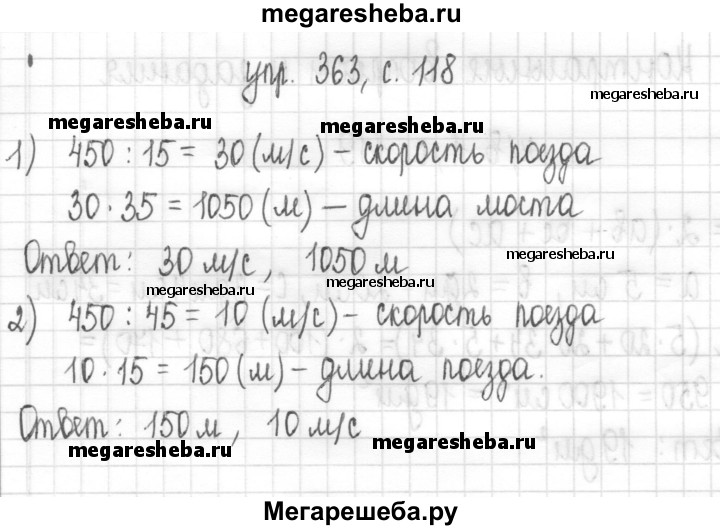 megaresheba.ru
упр. 363, с. 118
megaresheba.ru
megaresheba.ru
megaresheba.ru
1) 450 : 15 = 30 (м/с) – скорость поезда
30 · 35 = 1050 (м) – длина моста
Ответ: 30 м/с, 1050 м
megaresheba.ru
megaresheba.ru
2) 450 : 45 = 10 (м/с) – скорость поезда
10 · 15 = 150 (м) – длина поезда.
Ответ: 150 м, 10 м/с
megaresheba.ru
megaresheba.ru
Мегарешеба.ру